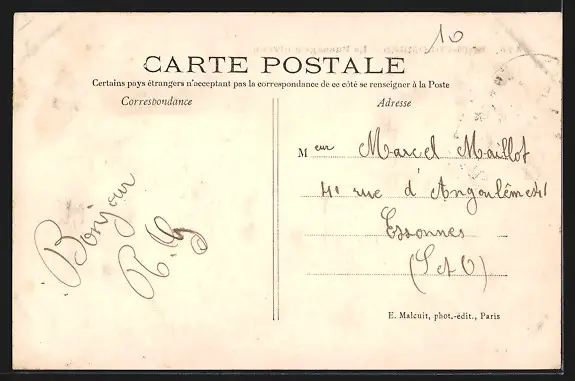 10
CARTE POSTALE
Certains pays étrangers n'acceptant pas la correspondance de ce côté se renseigner à la Poste
Correspondance
Adresse
Meur Marcel Maillot
rue d'Angoulême
Essonnes
(S et O)
Bonjour
E. Malcuit, phot.-édit., Paris